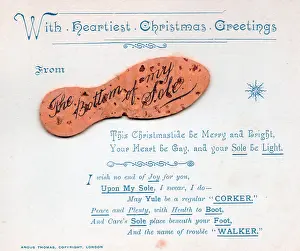 With Heartiest Christmas Greetings
From
The Bottom of my Sole
This Christmastide be Merry and Bright,
Your Heart be Gay, and your Sole be Light.
I wish no end of Joy for you,
Upon My Sole, I swear, I do—
May Yule be a regular "CORKER,"
Peace and Plenty, with Health to Boot,
And Care's Sole place beneath your Foot,
And the name of trouble "WALKER."
ANGUS THOMAS, COPYRIGHT, LONDON